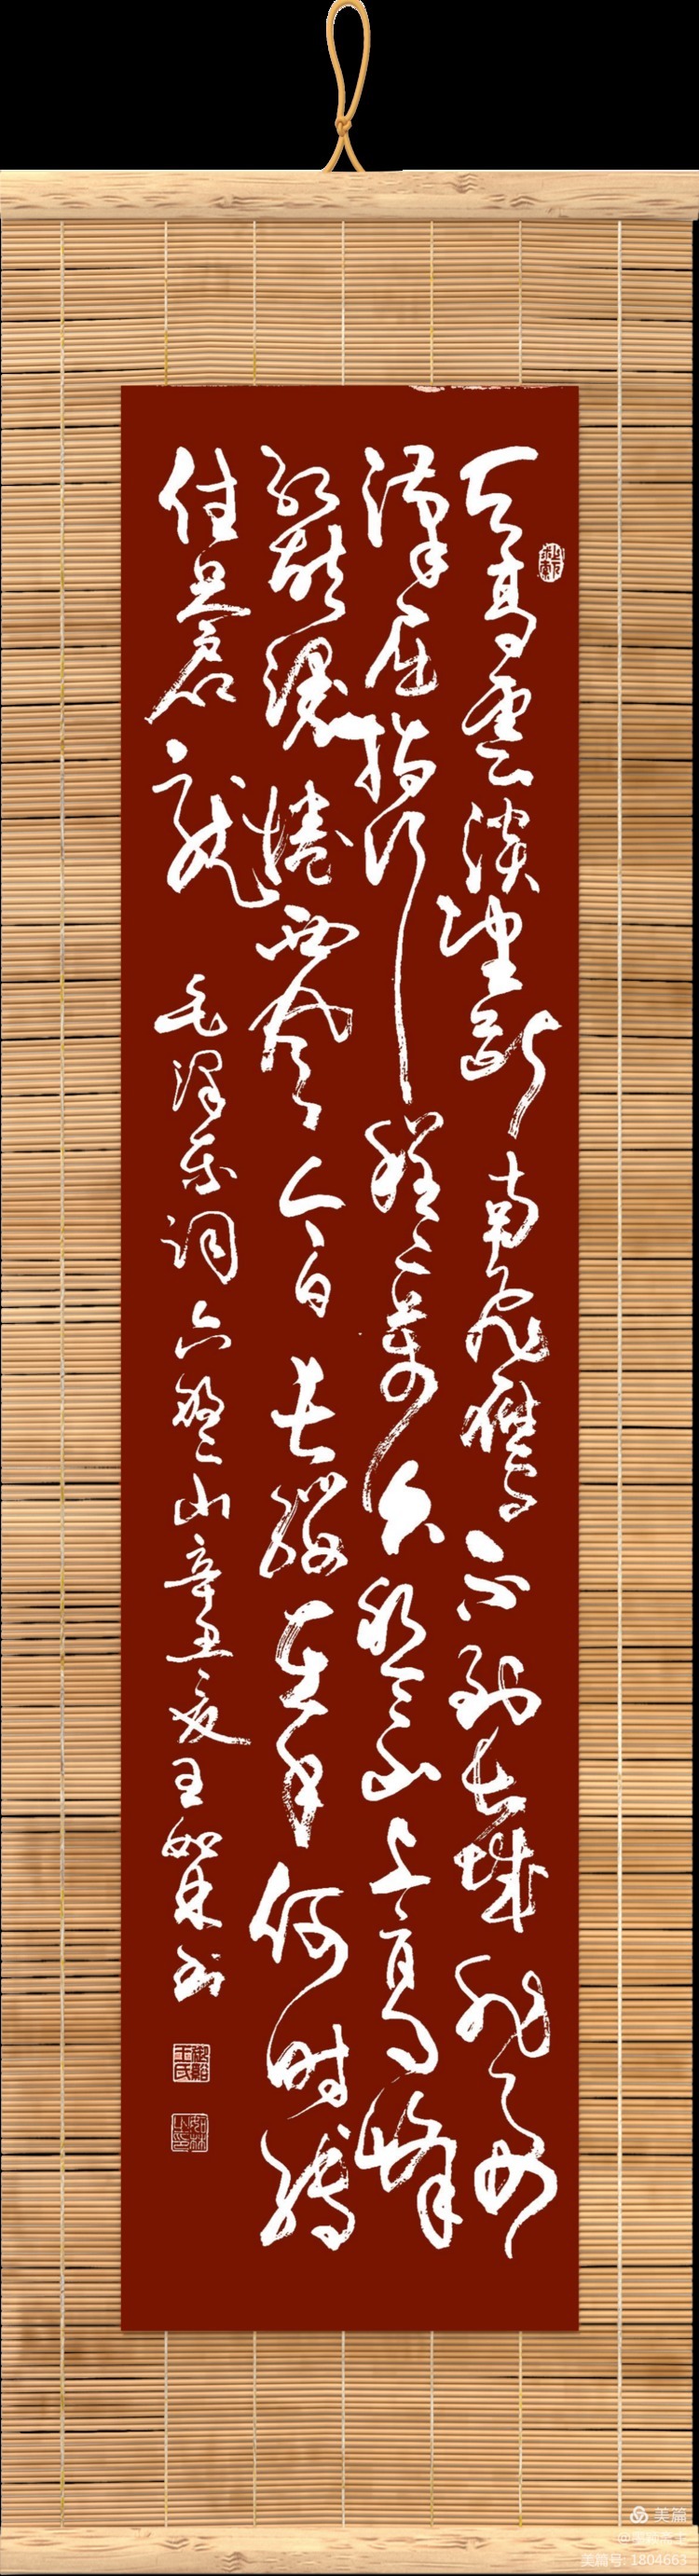 天高雲淡望断南飛雁不到长城非好
漢屈指行程二萬六盤山上高峰
红旗漫捲西风今日长缨在手何时缚
住苍龙 毛泽东词六盘山辛丑夏王如林书
美篇
美篇号: 1804663